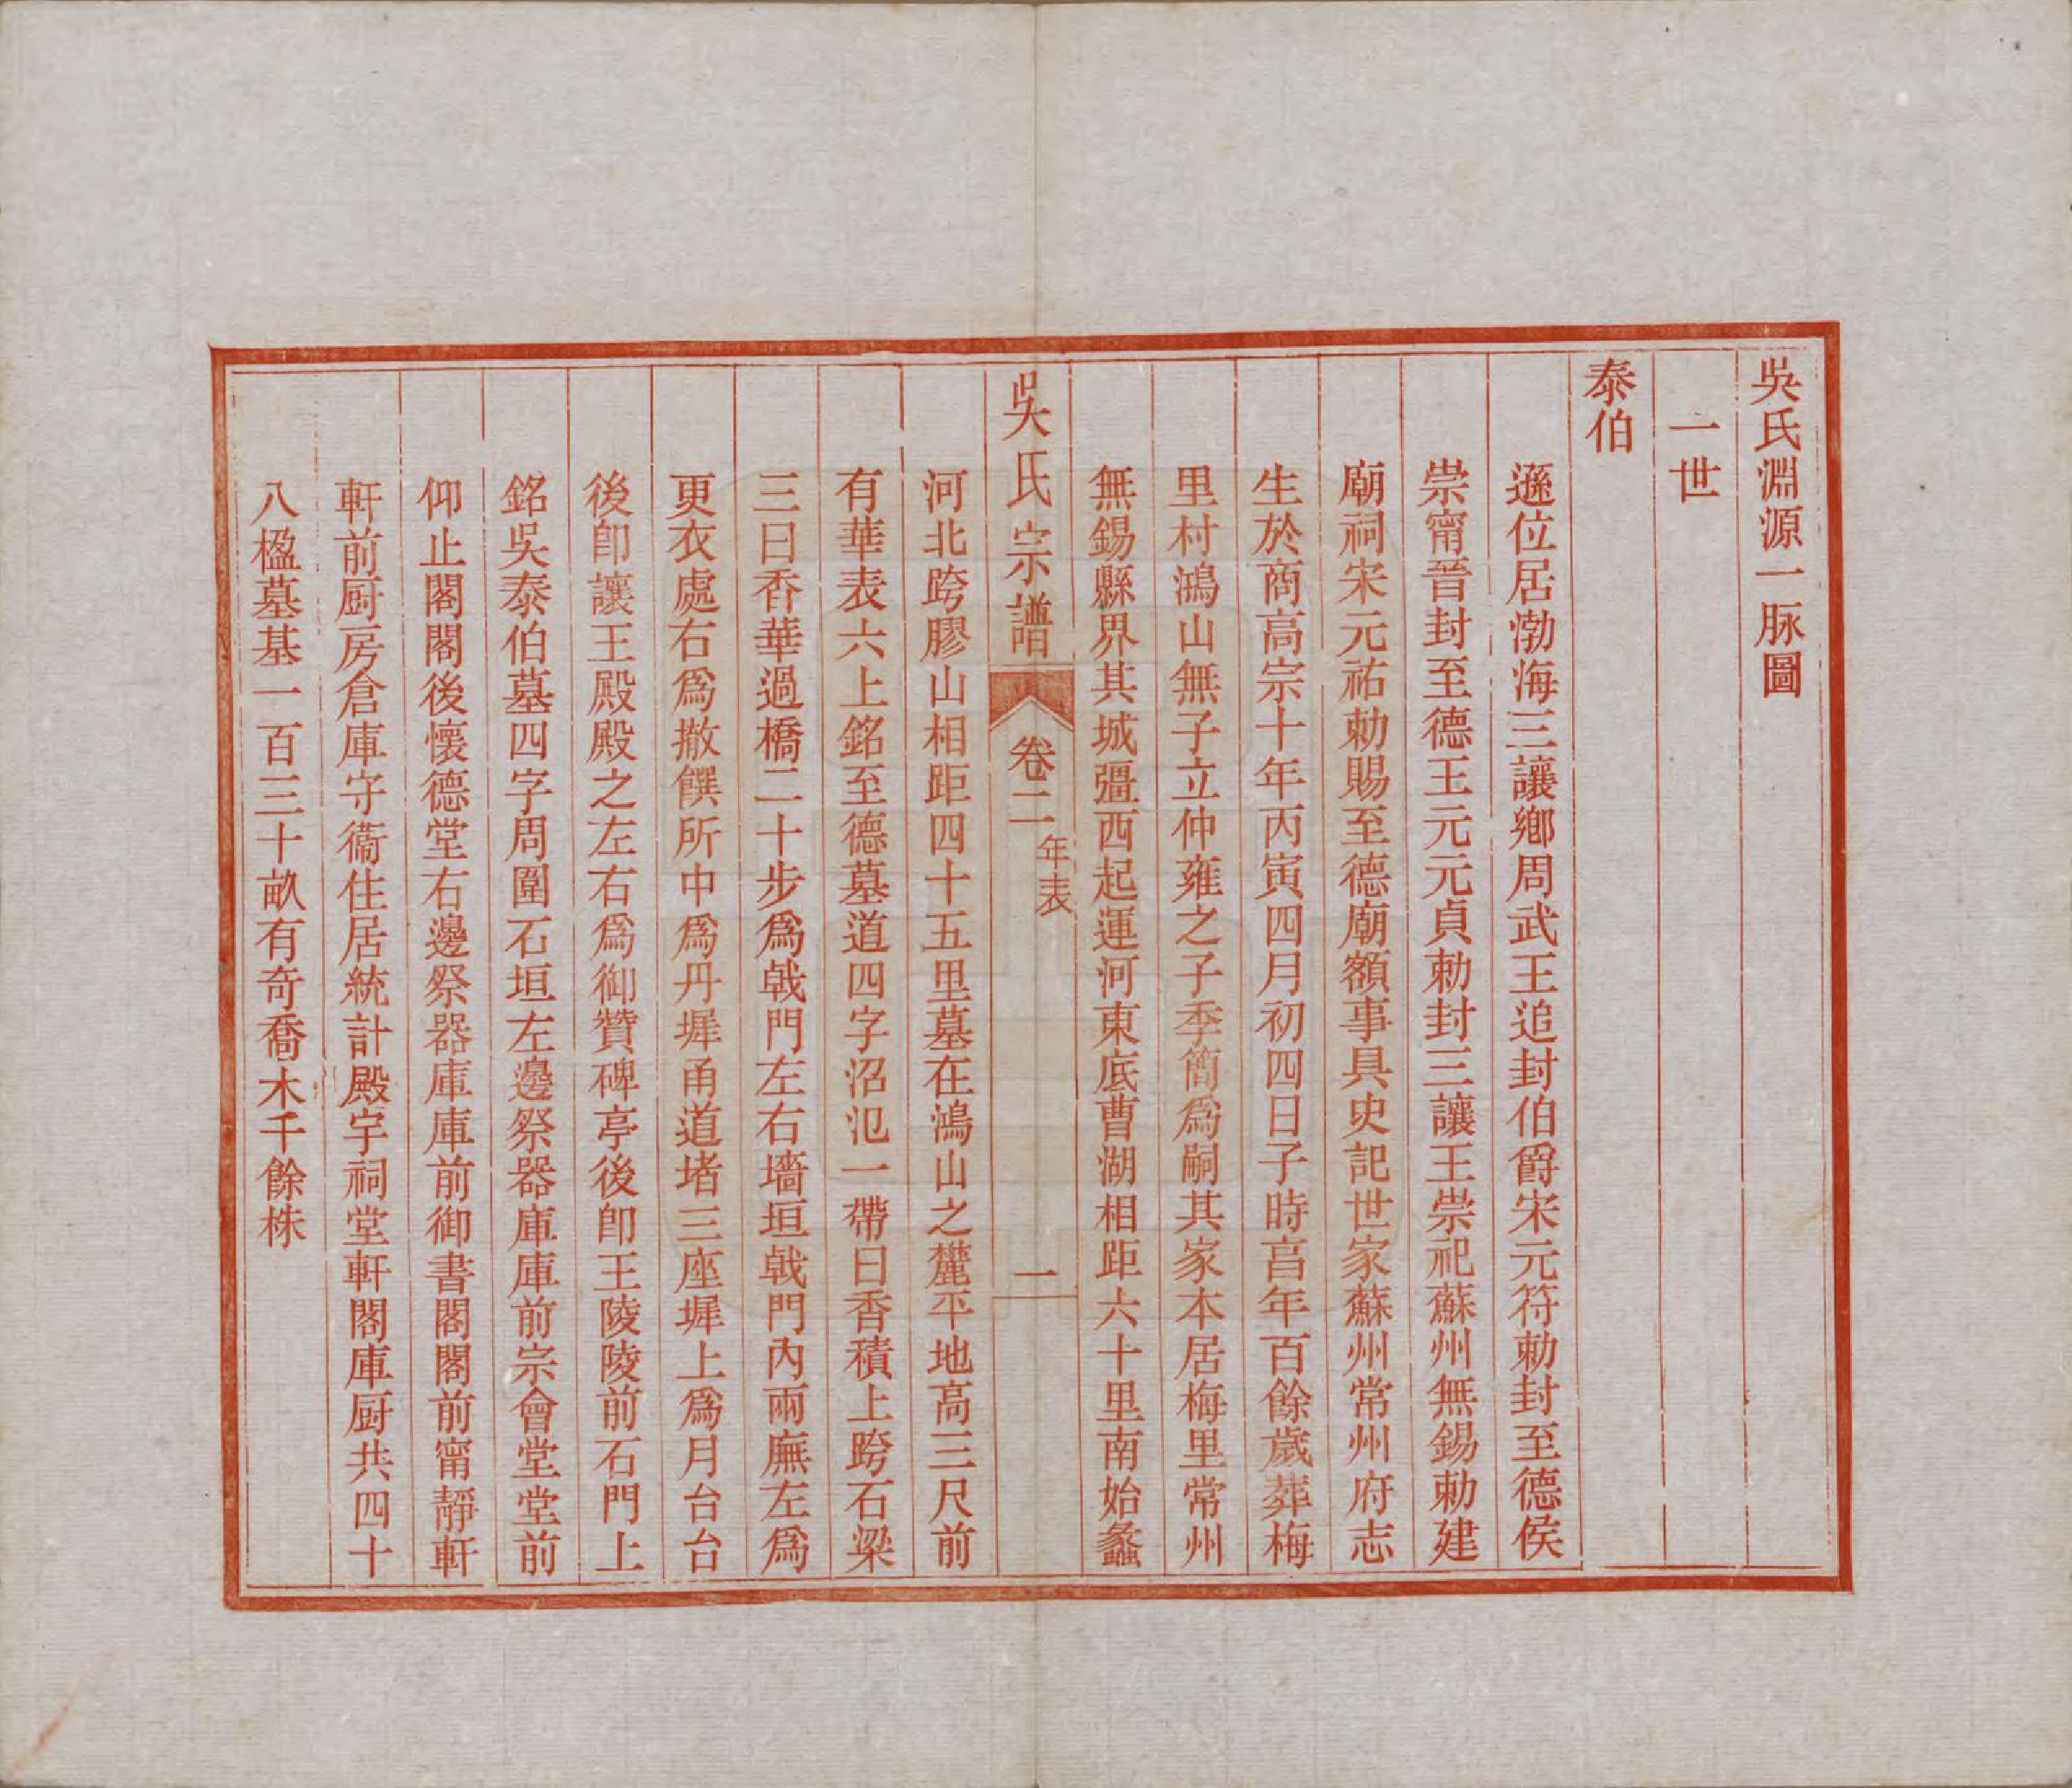 吳氏淵源一脉圖
一世
泰伯
遜位居渤海三讓鄉周武王追封伯爵宋元符勅封至德侯
崇甯晉封至德王元元貞勅封三讓王崇祀蘇州無錫勅建
廟祠宋元祐勅賜至德廟額事具史記世家蘇州常州府志
生於商高宗十年丙寅四月初四日子時亯年百餘歲葬梅
里村鴻山無子立仲雍之子季簡爲嗣其家本居梅里常州
無錫縣界其城彊西起運河東底曹湖相距六十里南始蠡
吳氏宗譜
卷二
年表
一
河北跨膠山相距四十五里墓在鴻山之麓平地高三尺前
有華表六上銘至德墓道四字沼氾一帶曰香積上跨石梁
三曰香華過橋二十步爲戟門左右墻垣戟門內兩廡左爲
更衣處右爲撤饌所中爲丹墀甬道堵三座墀上爲月台台
後卽讓王殿殿之左右爲御贊碑亭後卽王陵陵前石門上
銘吳泰伯墓四字周圍石垣左邊祭器庫庫前宗會堂堂前
仰止閣閣後懷德堂右邊祭器庫庫前御書閣閣前甯靜軒
軒前厨房倉庫守衞住居統計殿宇祠堂軒閣庫厨共四十
八楹墓基一百三十畝有奇喬木千餘株